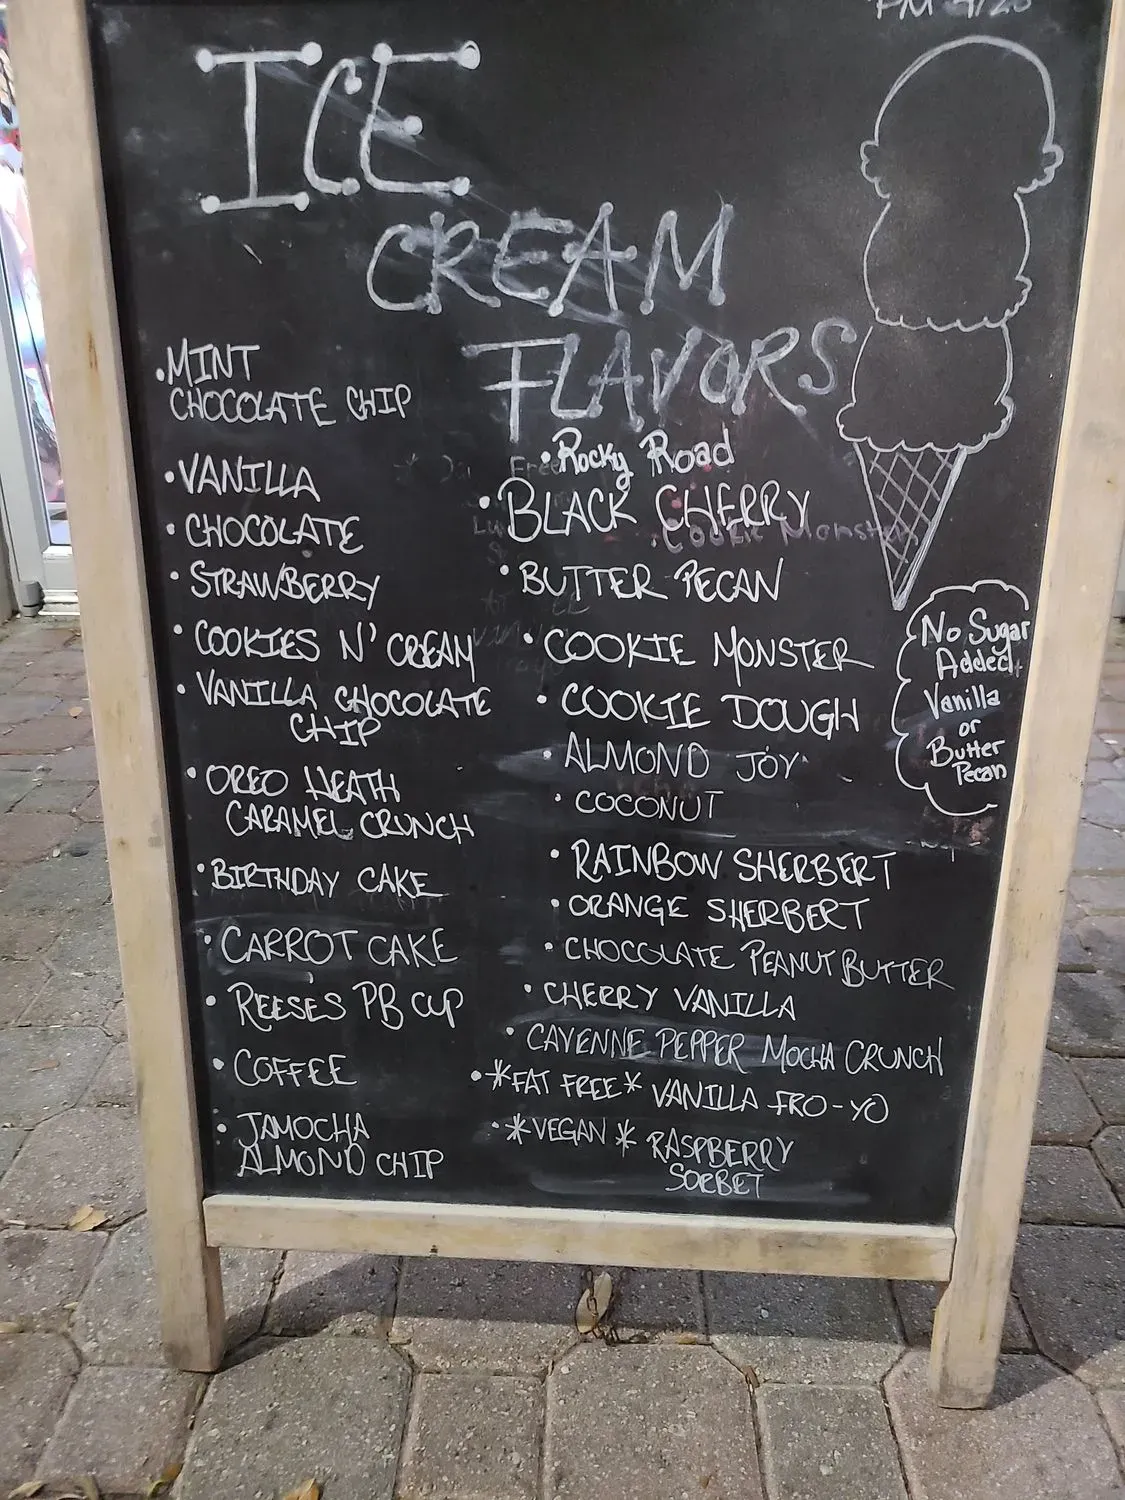 ICE
CREAM
FLAVORS
• MINT
CHOCOLATE CHIP
• VANILLA
• CHOCOLATE
• STRAWBERRY
• COOKIES N' CREAM
• VANILLA CHOCOLATE
CHIP
• OREO HEATH
CARAMEL CRUNCH
• BIRTHDAY CAKE
• CARROT CAKE
• REESES PB CUP
• COFFEE
• JAMOCHA
ALMOND CHIP
• Rocky Road
• BLACK CHERRY
• Cookie Monster
• BUTTER PECAN
• COOKIE MONSTER
• COOKIE DOUGH
• ALMOND JOY
• COCONUT
• RAINBOW SHERBERT
• ORANGE SHERBERT
• CHOCOLATE PEANUT BUTTER
• CHERRY VANILLA
• CAYENNE PEPPER MOCHA CRUNCH
• *FAT FREE* VANILLA FRO-YO
• *VEGAN* RASPBERRY
SORBET
No Sugar
Added
Vanilla
or
Butter
Pecan